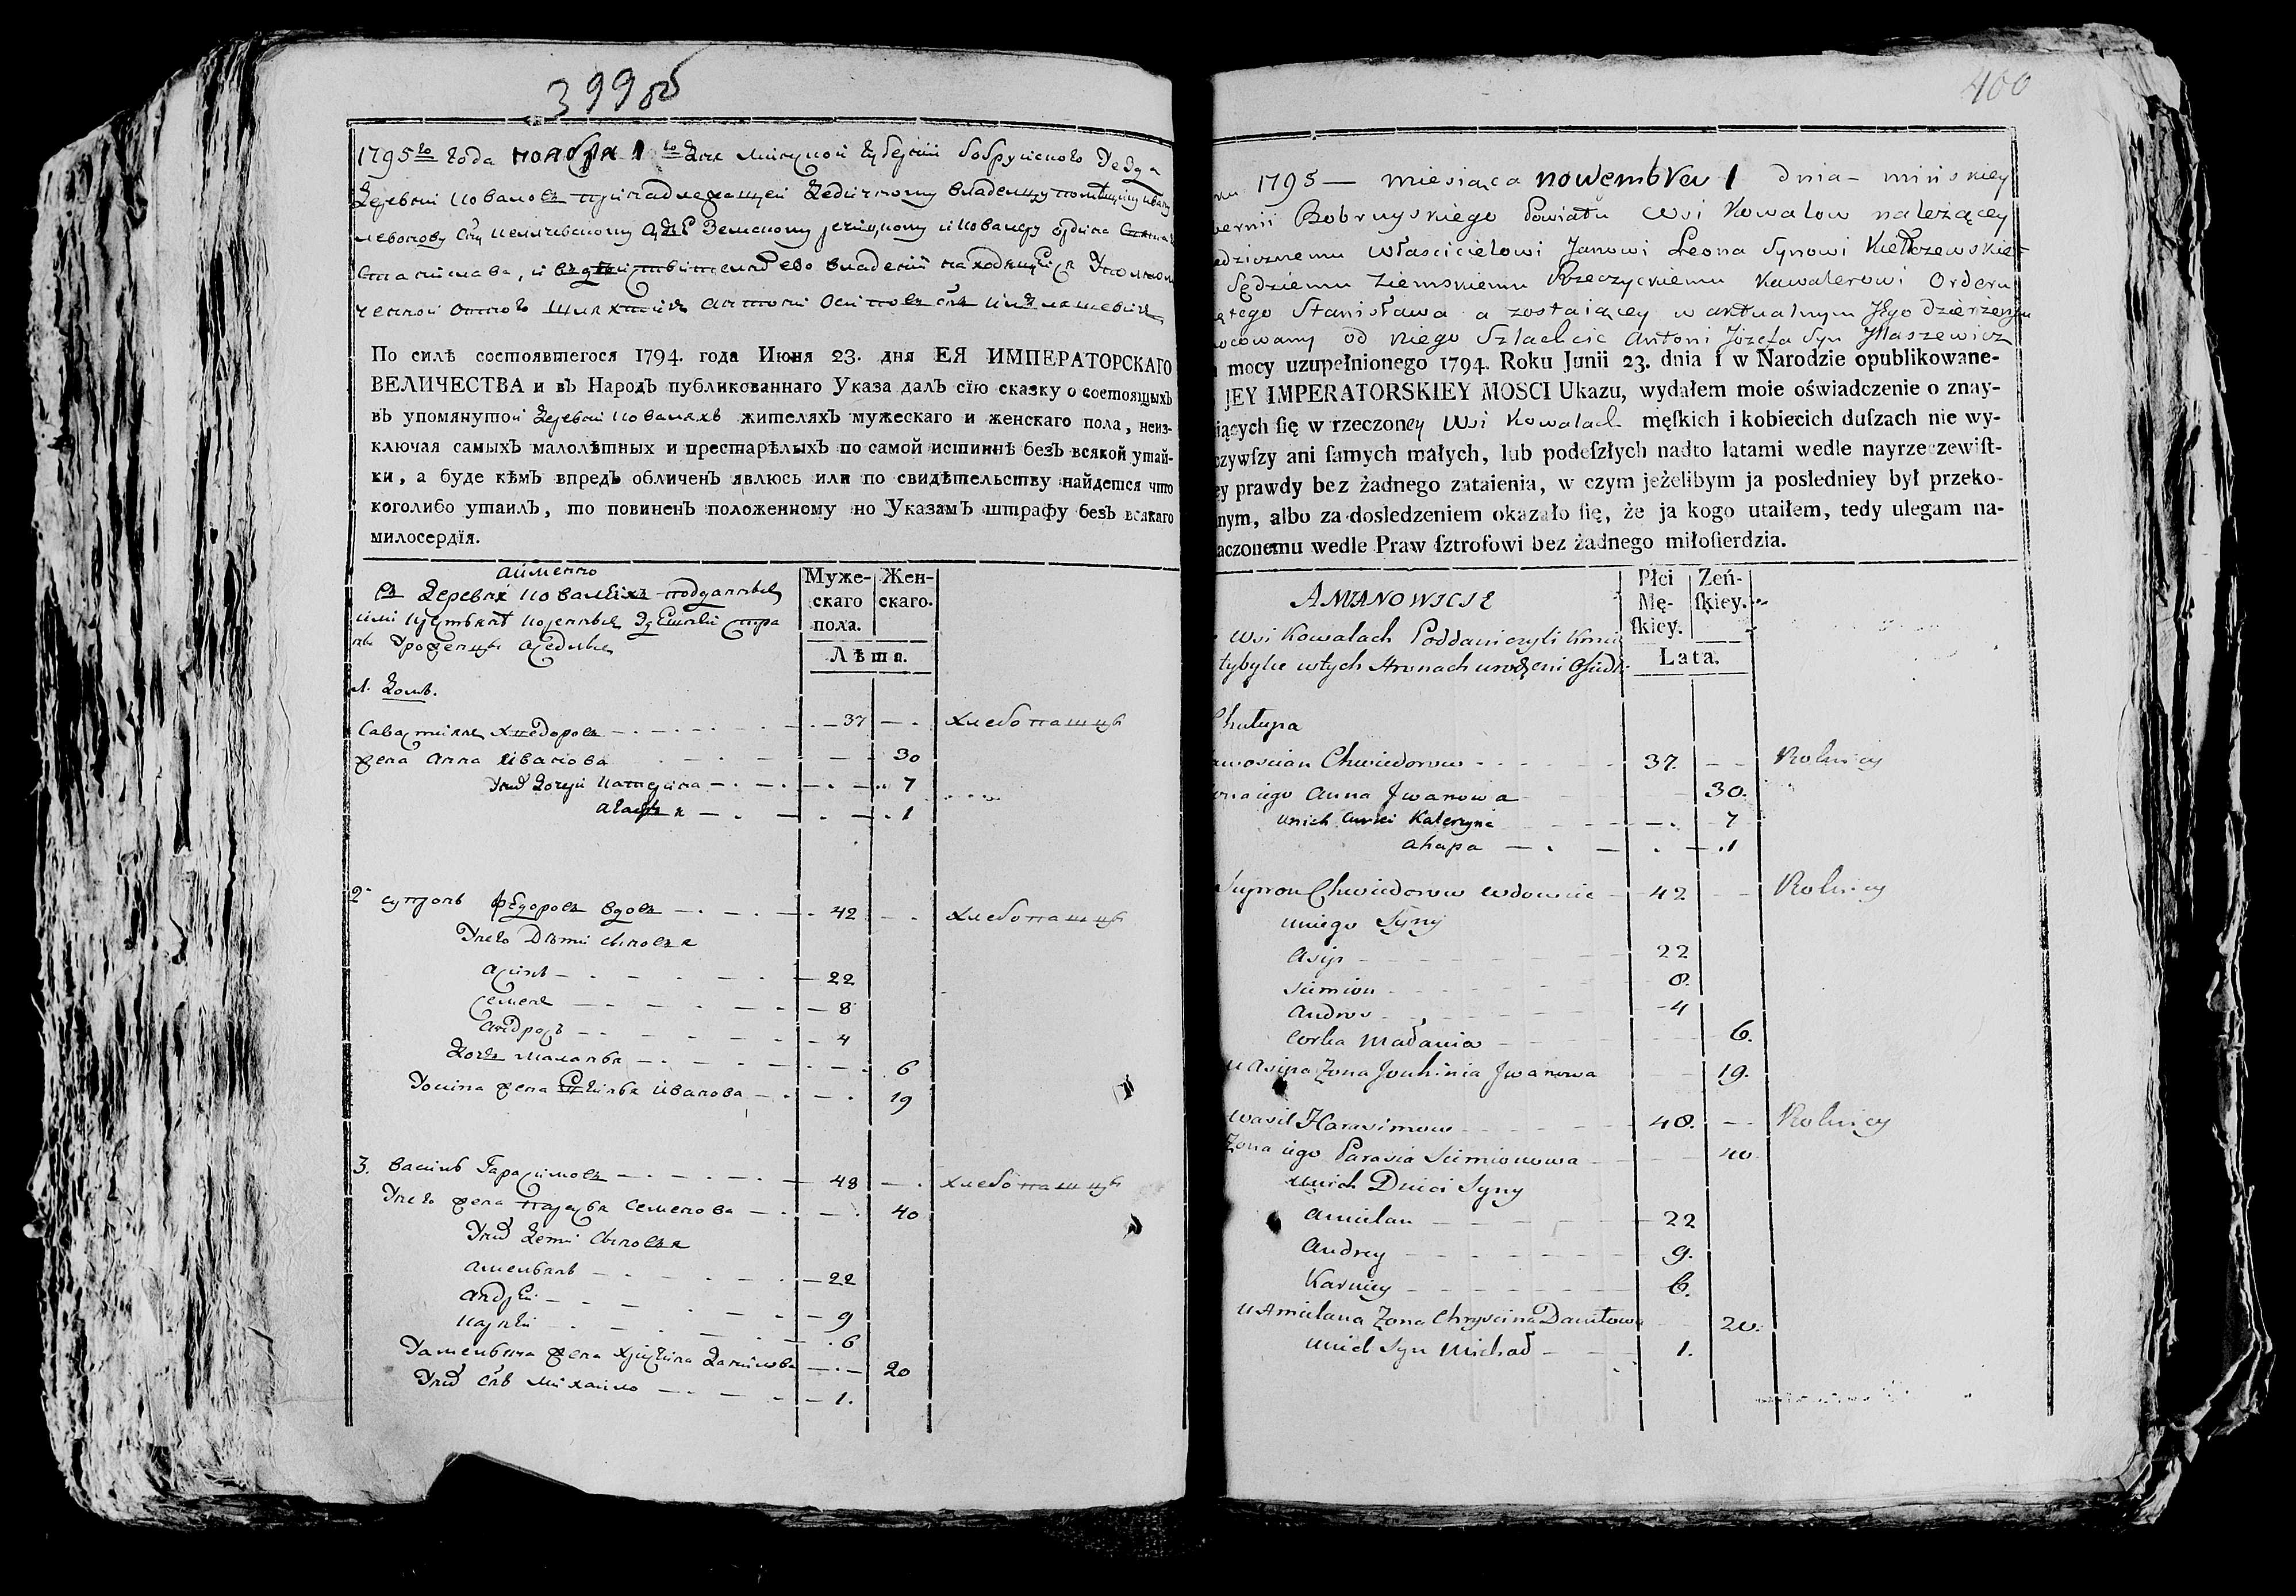 399об
1795го года ноября 1го дня минской губернии бобруйского уезда
деревни Ковалов принадлежащей владельцу помещику Ивану
Леонову сыну судье Земскому речицкому и кавалеру ордина
Станислава, и в его владении находящейся
шляхтич Антони Осипов сын
По силѣ состоявшегося 1794. года Июня 23. дня ЕЯ ИМПЕРАТОРСКАГО
ВЕЛИЧЕСТВА и въ Народъ публикованнаго Указа далъ сїю сказку о состоящыхъ
въ упомянутой деревни Ковалахъ жителяхъ мужескаго и женскаго пола, неиз-
ключая самыхъ малолѣтныхъ и престарѣлыхъ по самой истиннѣ безъ всякой утай-
ки, а буде кѣмъ впредь обличенъ явлюсь или по свидѣтельству найдется что
коголибо утаилъ, то повиненъ положенному по Указамъ штрафу безъ всякаго
милосердїя.
аименно
в деревне Ковалях подданные
Муже-
скаго
пола.
Жен-
скаго.
Лѣта.
1. домъ.
Савастиян Хведоров 37 хлебопашцы
жена Анна Иванова 30
у них дочери Катерина 7
Агапя 1
2 Супронъ Федоров вдов 42 хлебопашцы
У него Дети сыновя
Асипъ 22
Семен 8
Андрось 4
дочь Маланья 6
жена Иванова 19
3. Василь Гарасимов 48 хлебопашцы
У него жена Парасья Семенова 40
У них дети сыновя
Амельянъ 22
Андрей 9
Карней 6
У Амельяна жена Христина Данилова 20
У них сынъ Михайло 1.
400
1795 — miesiąca nowembra 1 dnia – mińskiey
Bobruyskiego Powiatu Wsi Kowalow należącey
właścicielowi Janowi Leona Synowi
Sędziemu Ziemskiemu Rzeczyckiemu Kawalerowi Orderu
Stanisława a zostaiącey w aktualnym Jego dzierżeniu
od niego Szlachcic Antoni Józefa Syn Jllaszewicz
mocy uzupełnionego 1794. Roku Junii 23. dnia i w Narodzie opublikowane-
JEY IMPERATORSKIEY MOSCI Ukazu, wydałem moie oświadczenie o znay-
iących ſię w rzeczoney Wsi Kowalach męſkich i kobiecich duſzach nie wy-
czywſzy ani ſamych małych, lub podeſzłych nadto latami wedle nayrzeczewiſt-
ey prawdy bez żadnego zataienia, w czym jeżelibym ja posledniey był przeko-
nym, albo za dosledzeniem okazało ſię, że ja kogo utaiłem, tedy ulegam na-
aczonemu wedle Praw ſztrofowi bez żadnego miłoſierdzia.
AMIANOWICIE
Wsi Kowalach Poddani czyli
w tych stronach urodzeni
Płci
Mę-
ſkiey.
Zeń-
ſkiey.
Lata.
Chałupa
Chwiedorow 37. Rolnicy
Anna Jwanowa 30.
unich Katerzyna 7
Ahapa 1
Chwiedorow wdowiec 42 Rolnicy
uniego Syny
Asip 22
Siemion 8.
Andros 4
corka Małania 6.
u Asipa Zona Jwanowa 19.
Wasil Harasimow 48. Rolnicy
Zona iego Parasia Siemionowa 40
unich Dzieci Syny
Amielan 22
Andrey 9.
Karniey 6.
u Amielana Zona Chryscina Daniłowa 20.
unich Syn Michał 1.